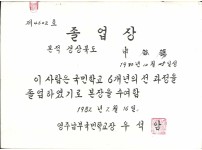 제4602호
졸업장
본적 경상북도
이 사람은 국민학교 6개년의 전 과정을
졸업하였기로 본장을 수여함
1982년 2월 16일
영주남부국민학교장 우석